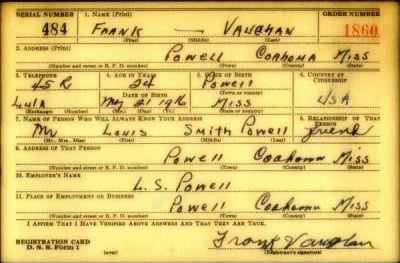 SERIAL NUMBER 1. NAME (Print) ORDER NUMBER
484 FRANK — VAUGHAN 1860
(First) (Middle) (Last)
2. ADDRESS (Print)
Powell Coahoma Miss
(Number and street or R. F. D. number) (Town) (County) (State)
3. TELEPHONE 4. AGE IN YEARS 5. PLACE OF BIRTH 6. COUNTRY OF CITIZENSHIP
45 R 24 Powell
Lula DATE OF BIRTH (Town or county) USA
May 21 1916 Miss
(Exchange) (Number) (Mo.) (Day) (Yr.) (State or country)
7. NAME OF PERSON WHO WILL ALWAYS KNOW YOUR ADDRESS 8. RELATIONSHIP OF THAT PERSON
Mr Louis Smith Powell friend
(Mr., Mrs., Miss) (First) (Middle) (Last)
9. ADDRESS OF THAT PERSON
Powell Coahoma Miss
(Number and street or R. F. D. number) (Town) (County) (State)
10. EMPLOYER'S NAME
L. S. Powell
11. PLACE OF EMPLOYMENT OR BUSINESS
Powell Coahoma Miss
(Number and street or R. F. D. number) (Town) (County) (State)
I AFFIRM THAT I HAVE VERIFIED ABOVE ANSWERS AND THAT THEY ARE TRUE.
Frank Vaughan
REGISTRATION CARD
D. S. S. Form 1 (over) (Registrant's signature)